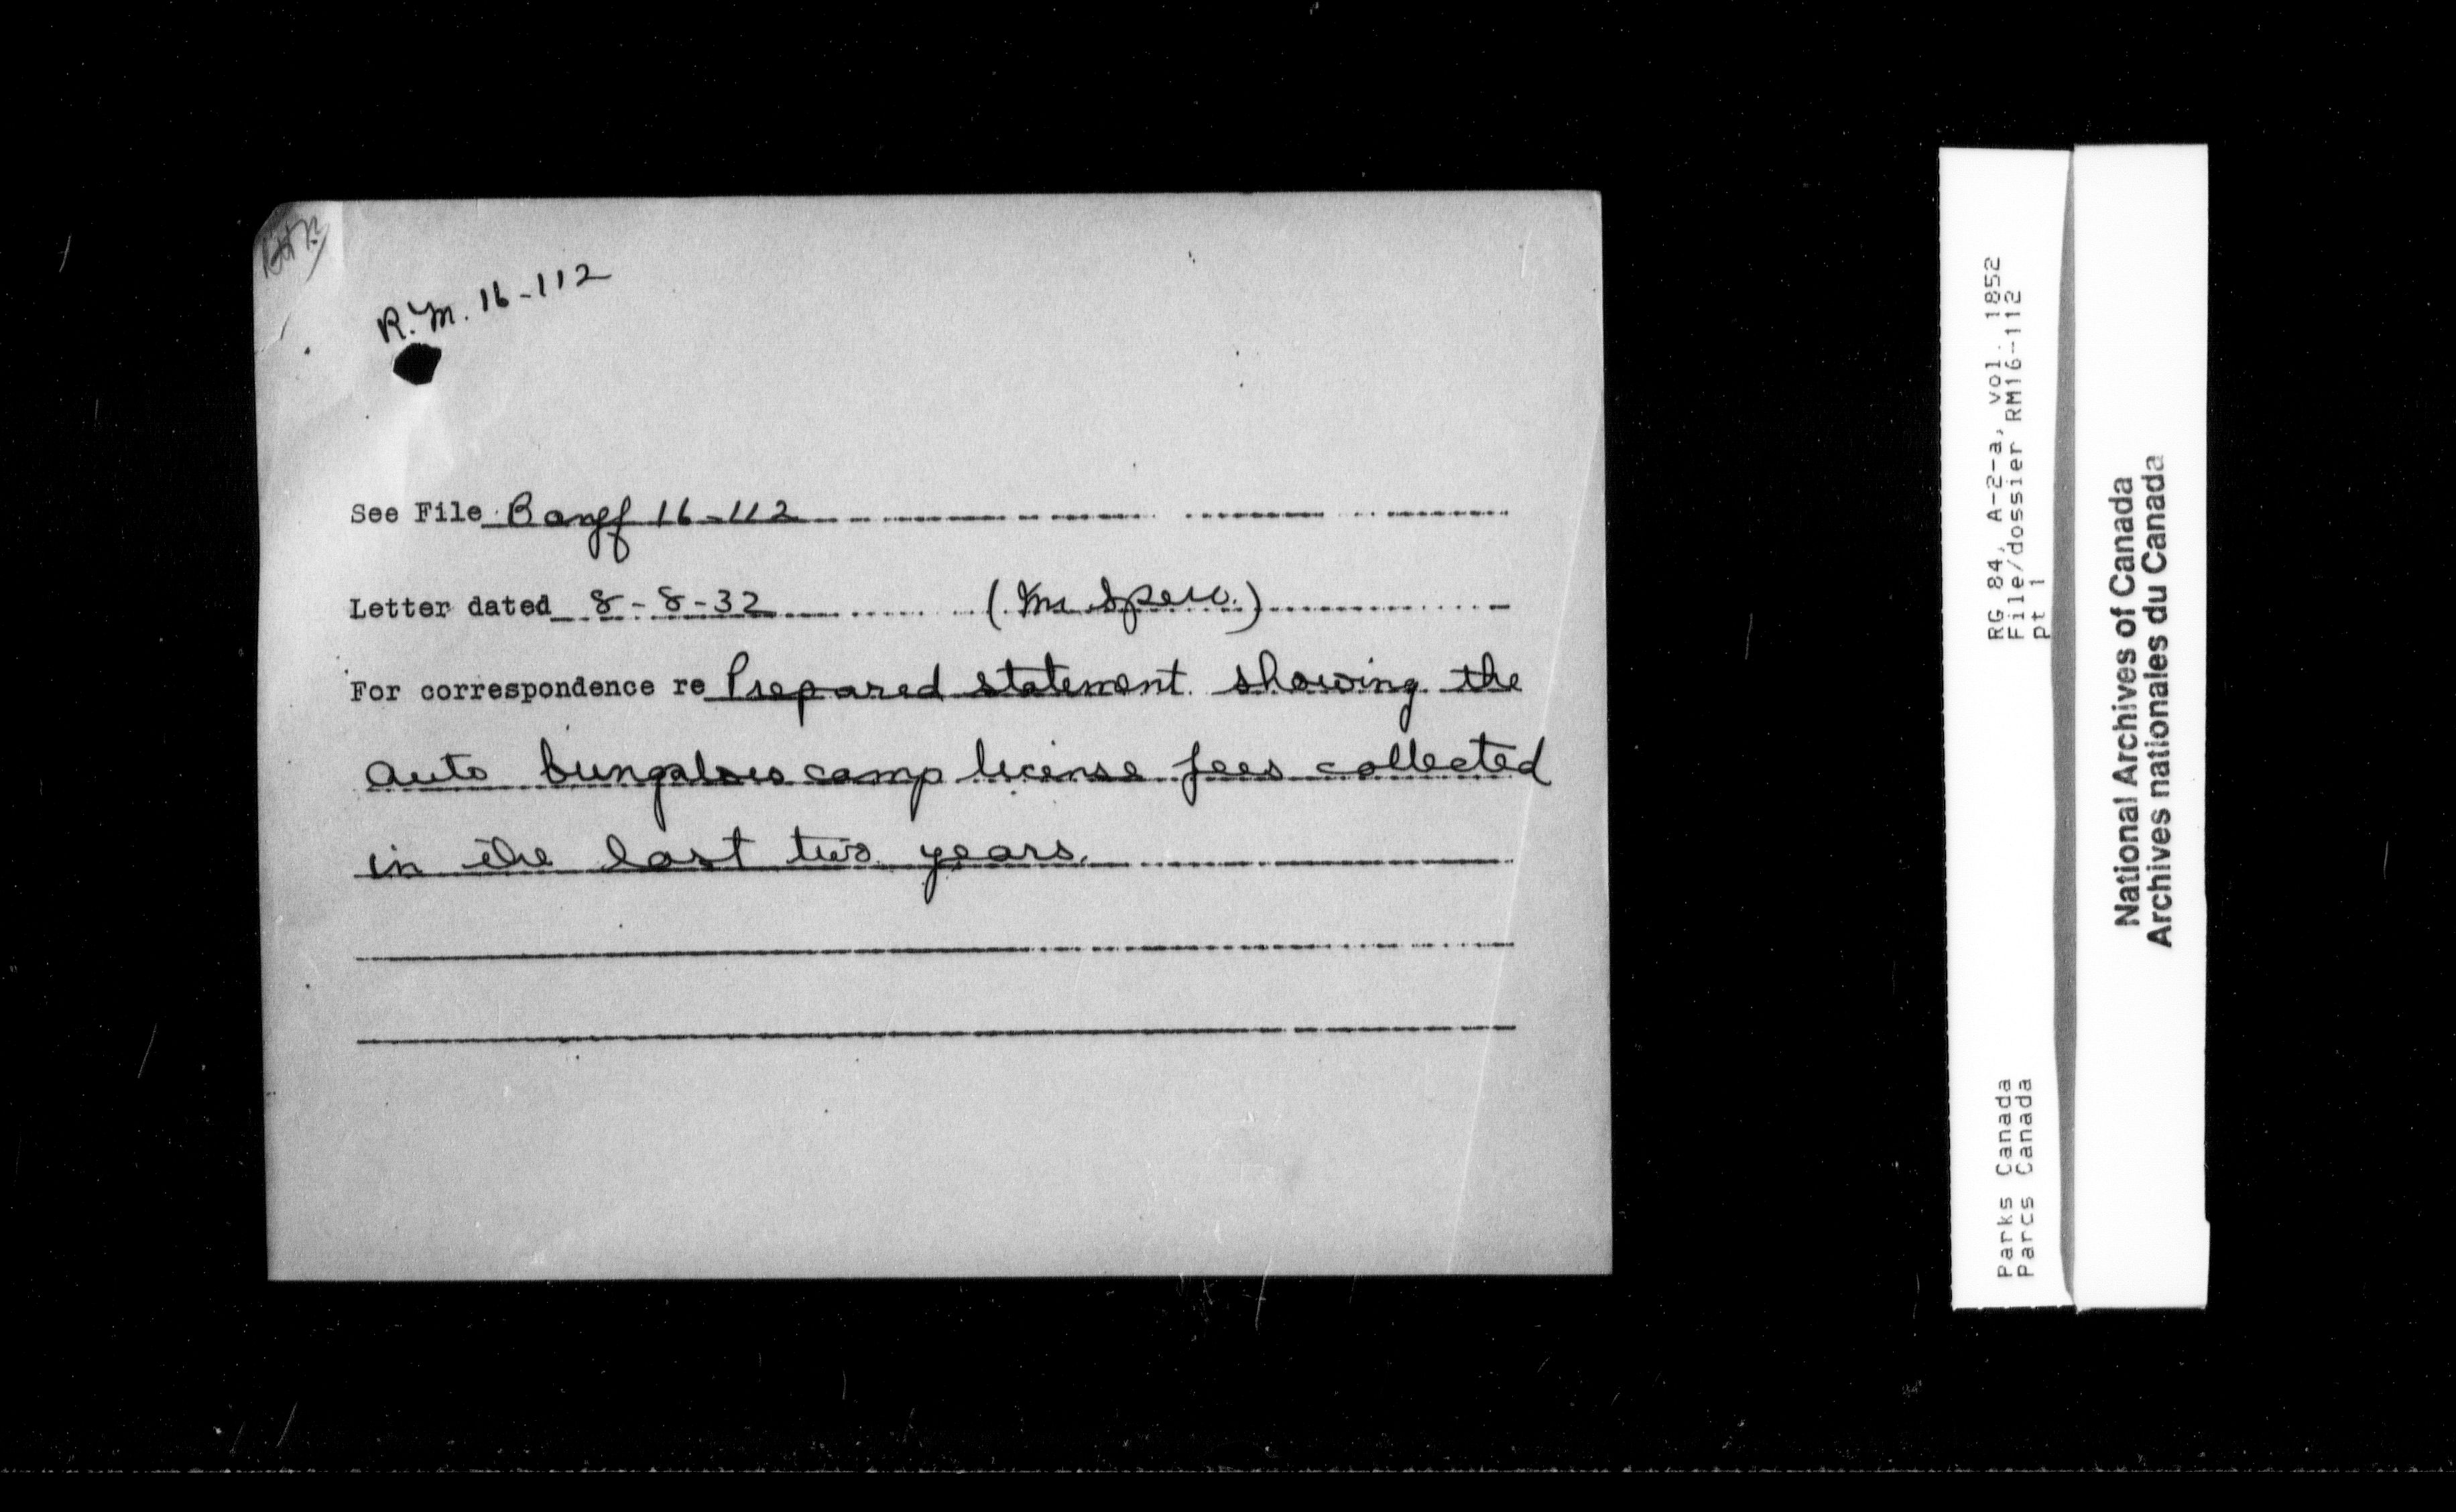 R.M. 16-112
See File Banff 16-112
Letter dated 8-8-32 (Mr Spero.)
For correspondence re Prepared statement showing the
auto bungalow camp license fees collected
in the last two years.
RG 84, A-2-a, vol. 1852
File/dossier RM16-112
pt 1
Parks Canada
Parcs Canada
National Archives of Canada
Archives nationales du Canada